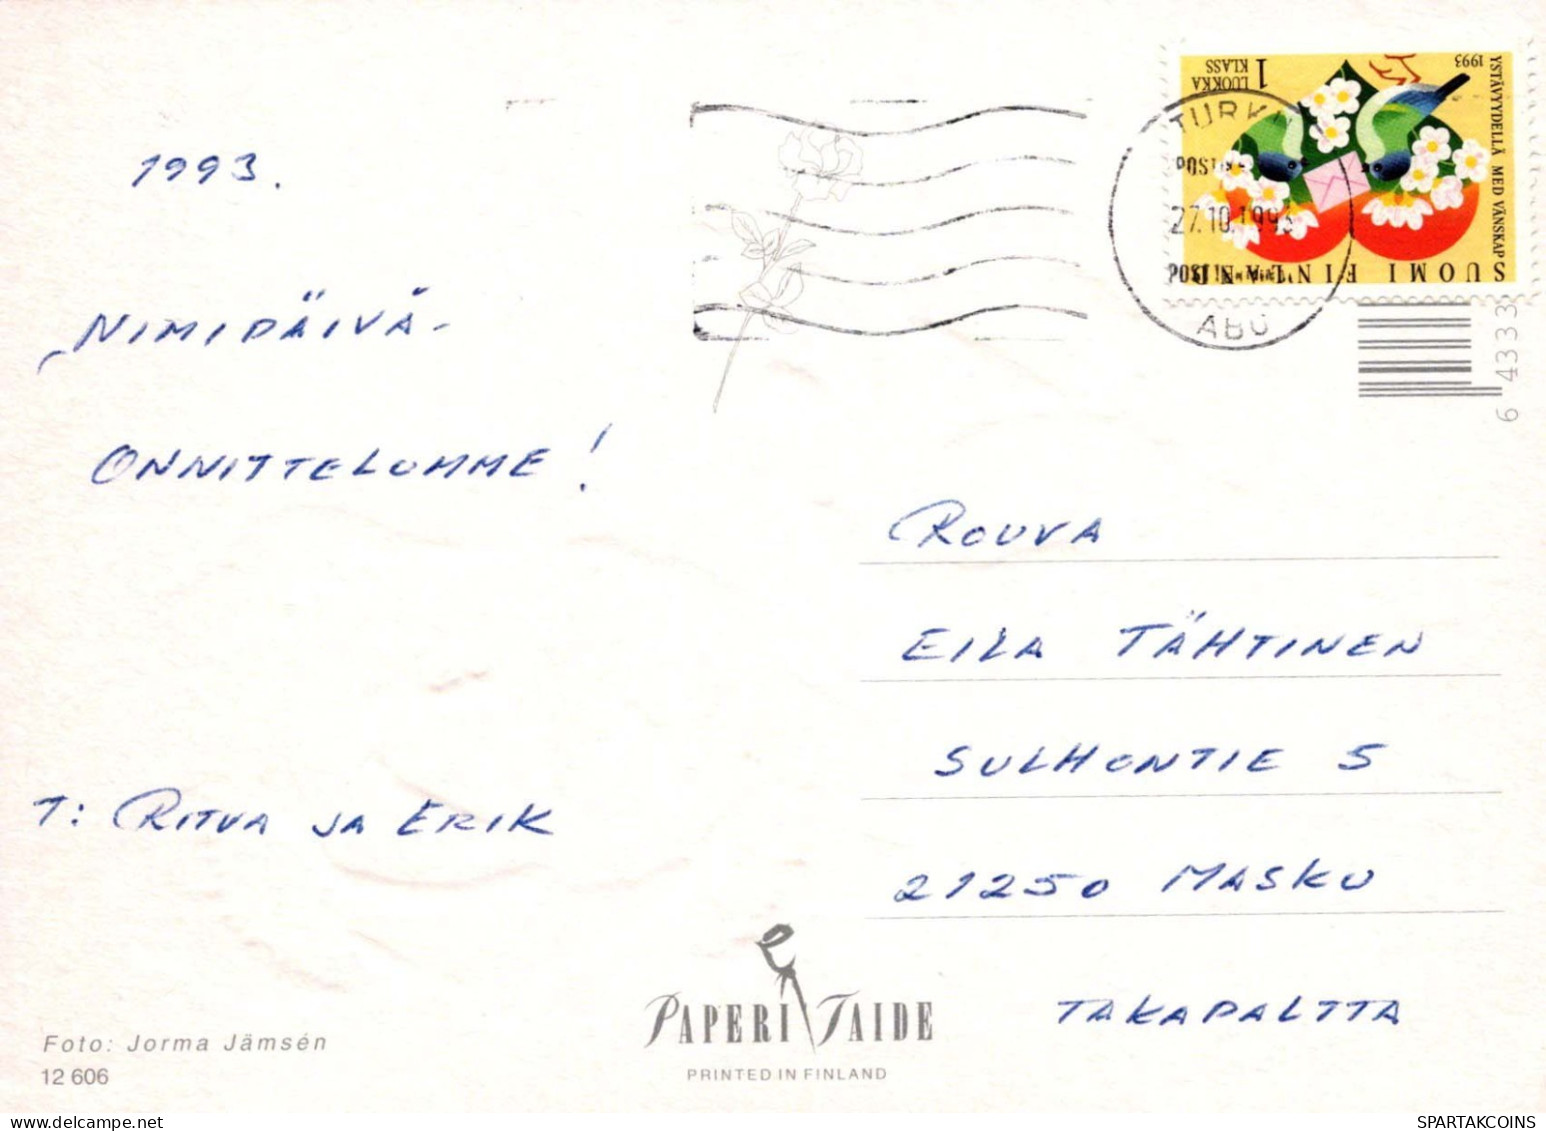 1993.
NIMIPÄIVÄ-
ONNITTELUMME!
T: RITVA JA ERIK
Foto: Jorma Jämsén
12 606
PAPERI TAIDE
PRINTED IN FINLAND
1 LUOKKA
KLASS
1993
YSTÄVYYDELLÄ MED VÄNSKAP
SUOMI FINLAND
TURKU
27.10.1993
ÅBO
6 4333
ROUVA
EILA TÄHTINEN
SULHONTIE 5
21250 MASKU
TAKAPALTTA
SPARTAKCOINS